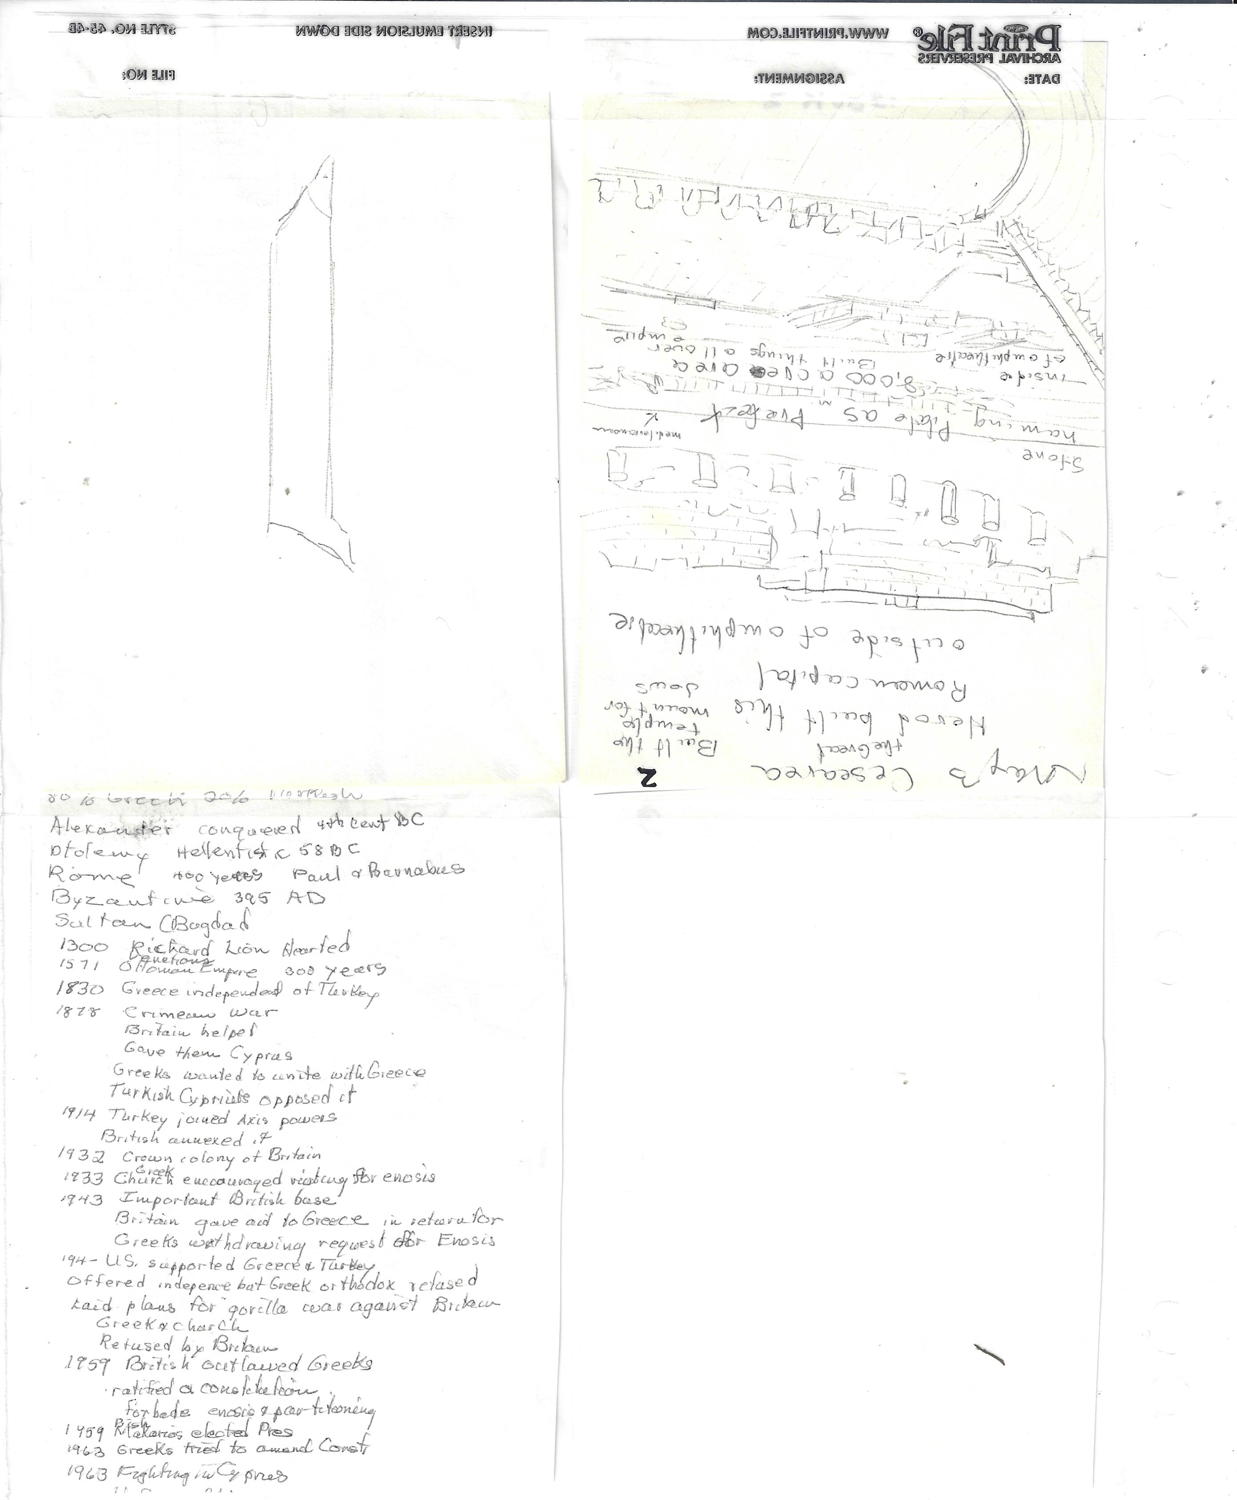 STYLE NO. 45-4B
INSERT EMULSION SIDE DOWN
WWW.PRINTFILE.COM
Print File®
ARCHIVAL PRESERVERS
FILE NO:
ASSIGNMENT:
DATE:
May 3 Cesearea
2
the Great
Herod built this
Roman capital
Built the
temple
mount for
Jews
outside of amphitheatre
Stone
naming Pilate as Prefect
mediteranean
inside
of amphitheatre
8,000 acres area
Built things all over
empire
80% Greek 20%
Alexander conquered 4th cent BC
Ptolemy Hellentistic 58 BC
Rome 400 years Paul & Barnabus
Byzantine 395 AD
Sultan (Bagdad
1300 Richard Lion Hearted
Venetians
1571 Ottoman Empire 300 years
1830 Greece independent of Turkey
1878 Crimean war
Britain helped
Gave them Cyprus
Greeks wanted to unite with Greece
Turkish Cypriots opposed it
1914 Turkey joined Axis powers
British annexed it
1932 Crown colony of Britain
Greek
1933 Church encouraged rioting for enosis
1943 Important British base
Britain gave aid to Greece in return for
Greeks withdrawing request for Enosis
194- U.S. supported Greece & Turkey
Offered indepence but Greek orthodox refused
Laid plans for gorilla war against Britain
Greek church
Refused by Britain
1959 British outlawed Greeks
ratified a constitution
forbade enosis & partitioning
1959 Bish Makarios elected Pres
1963 Greeks tried to amend Const
1963 Fighting in Cyprus